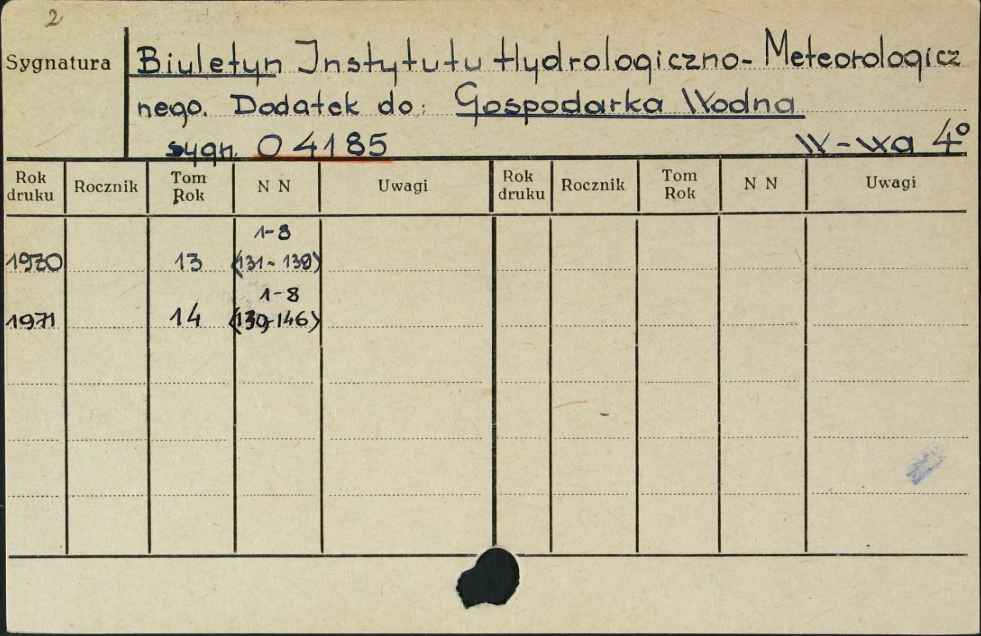 2
Sygnatura
Biuletyn Instytutu Hydrologiczno-Meteorologicz
nego. Dodatek do: Gospodarka Wodna
sygn. O 4185 W-wa 4°
Rok druku Rocznik Tom Rok N N Uwagi Rok druku Rocznik Tom Rok N N Uwagi
1-8
1970 13 (131-138)
1-8
1971 14 (139-146)